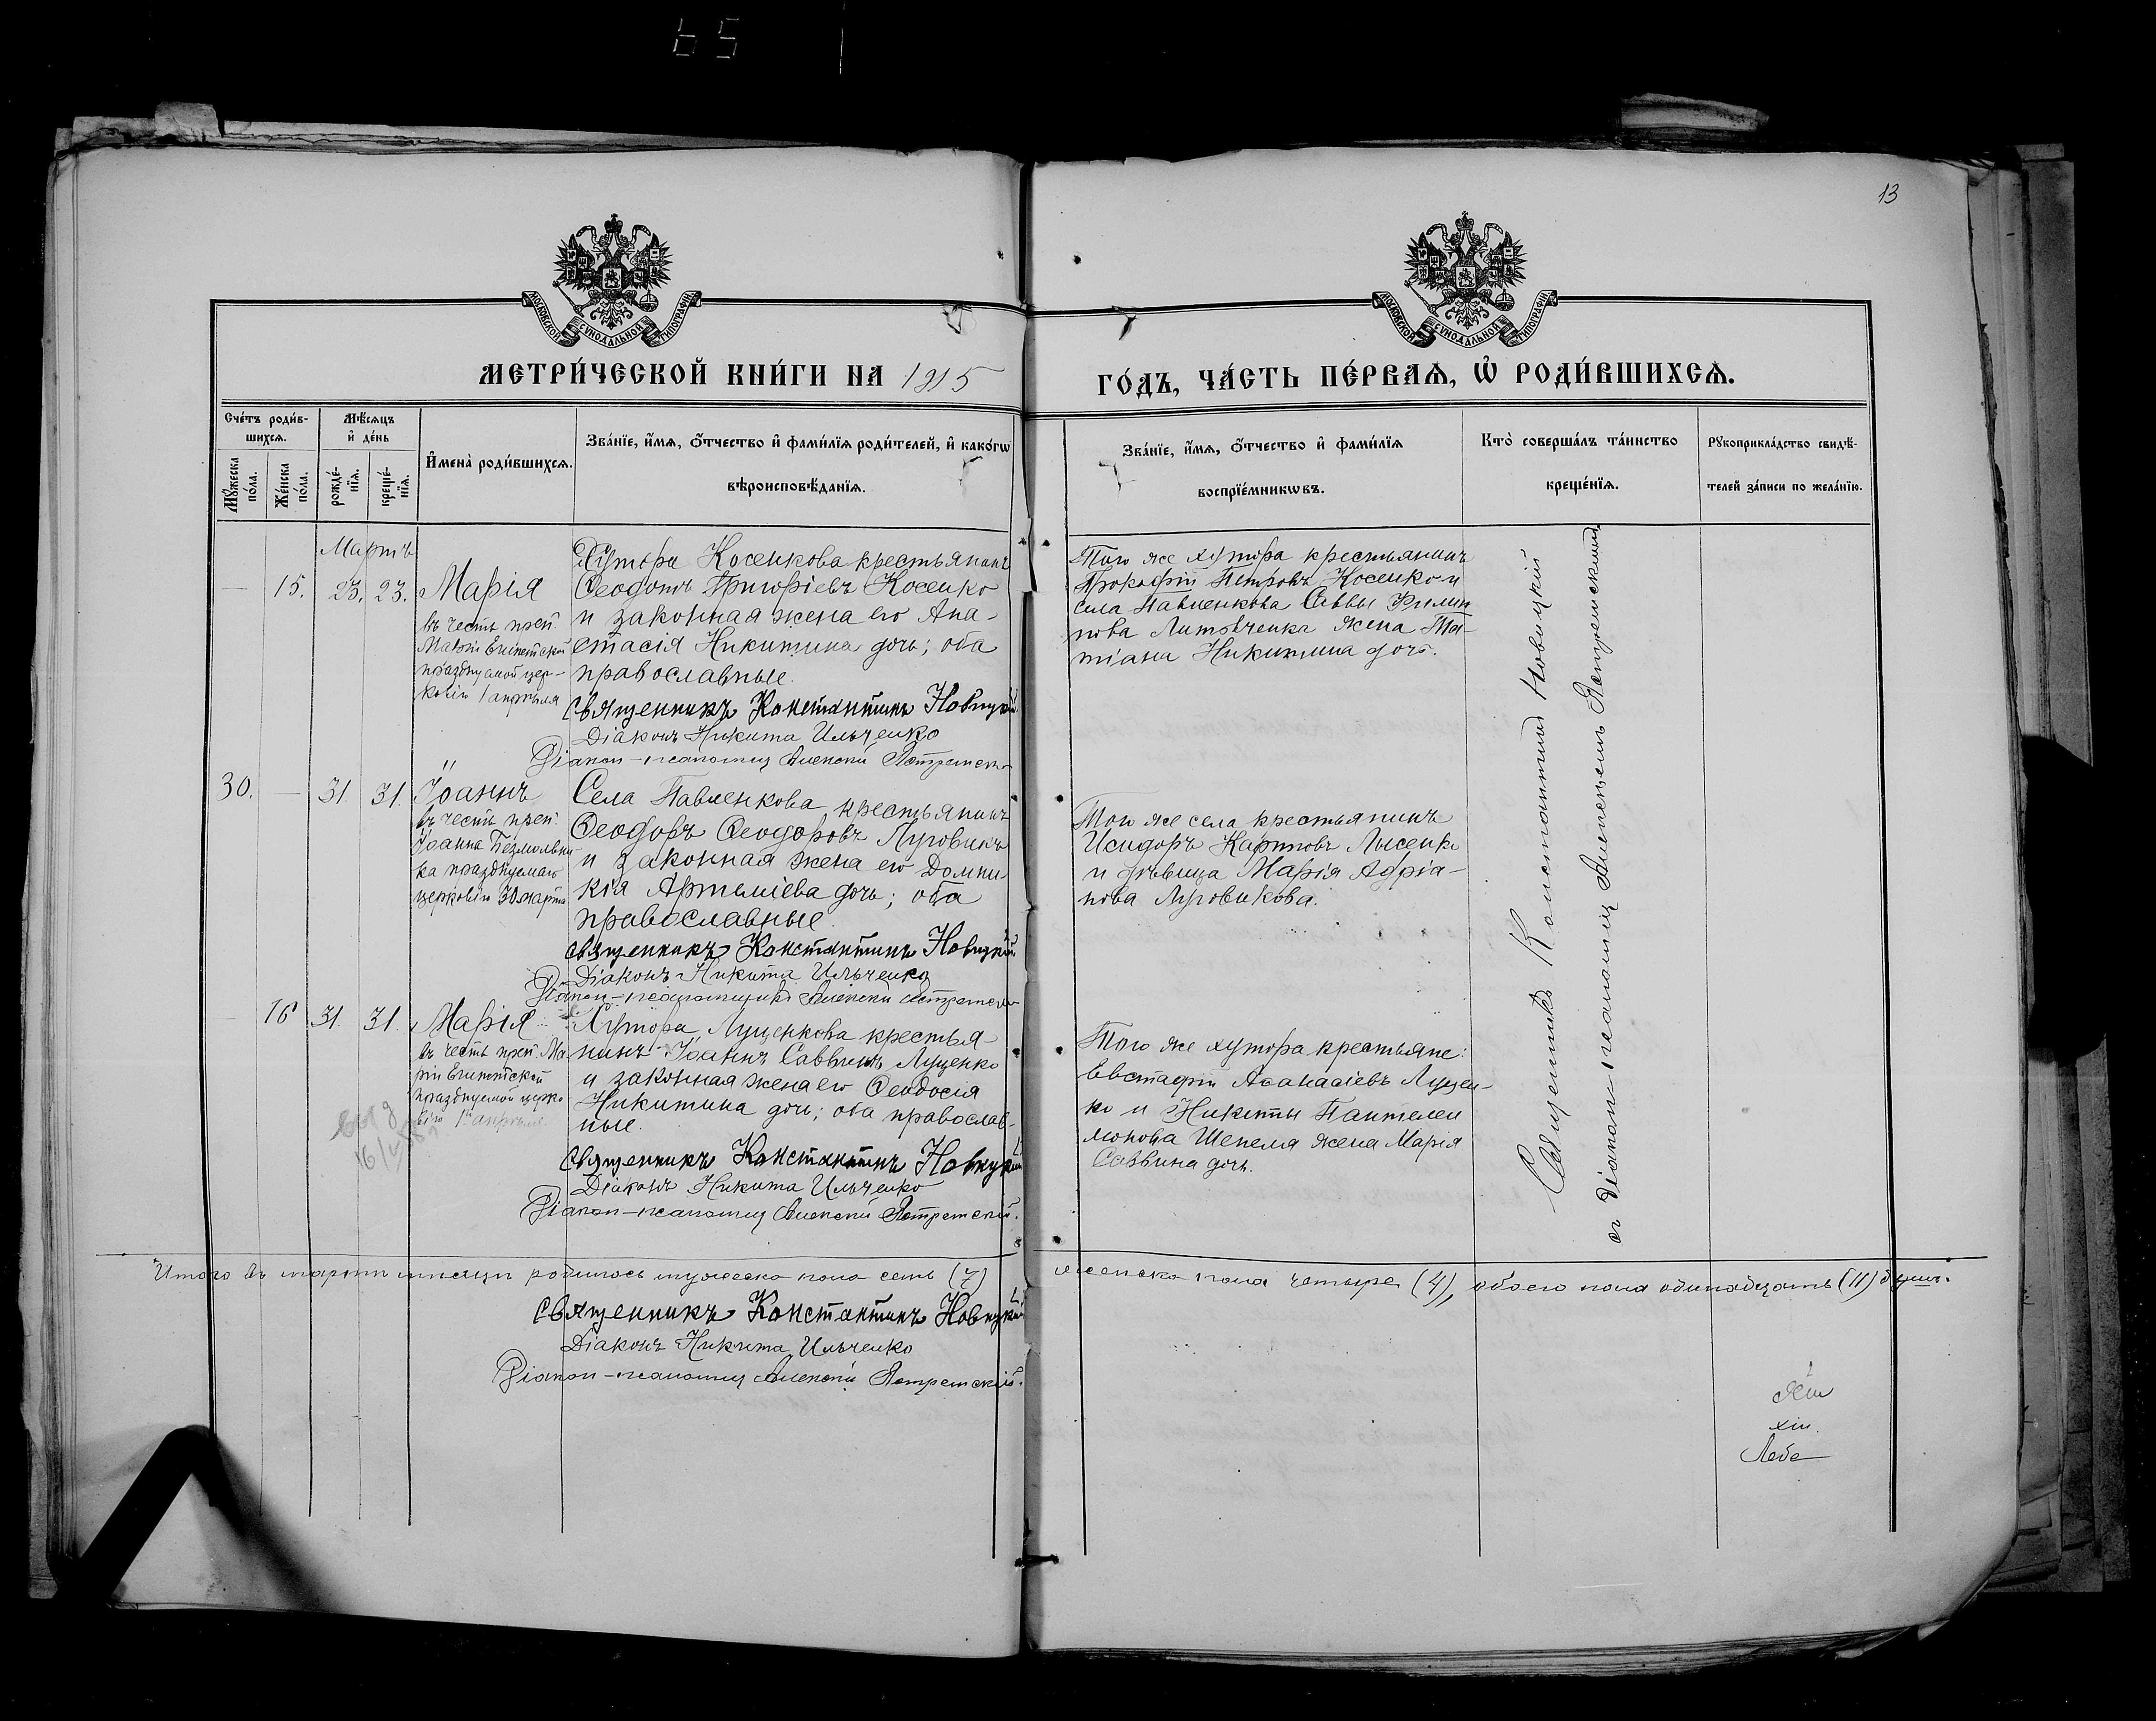 13
МОСКОВСКОЙ СУНОДАЛЬНОЙ ТИПОГРАФІИ
МОСКОВСКОЙ СУНОДАЛЬНОЙ ТИПОГРАФІИ
МЕТРИ́ЧЕСКОЙ КНИ́ГИ НА 1915
ГО́ДЪ, ЧА́СТЬ ПЕ́РВАѦ, Ѡ РОДИ́ВШИХСѦ.
Сче́тъ роди́в-
шихсѧ.
Мꙋ́жеска по́ла.
Же́нска по́ла.
Мѣ́сѧцъ
и҆ де́нь
рожде́-
нїѧ.
креще́-
нїѧ.
И҆мена̀ роди́вшихсѧ.
Зва́нїе, и҆́мѧ, ѻ҆́тчество и҆ фами́лїѧ роди́телей, и҆ како́гѡ
вѣроисповѣ́данїѧ.
Зва́нїе, и҆́мѧ, ѻ҆́тчество и҆ фами́лїѧ
воспрїе́мникѡвъ.
Кто̀ соверша́лъ та́инство
креще́нїѧ.
Рꙋкоприкла́дство свидѣ́-
телей за́писи по жела́нїю.
Мартъ
— 15. 23. 23.
Марія
въ честь преп.
Маріи Египетской
празднуемой цер-
ковію 1 апрѣля
Хутора Косенкова крестьянинъ
Ѳеодотъ Григоріевъ Косенко
и законная жена его Ана-
стасія Никитина дочь; оба
православные.
Священникъ Константинъ Новицкій
Діаконъ Никита Ильченко
Діакон-псаломщ Алексій
Того же хутора крестьянинъ
Прокофій Петровъ Косенко и
села Павленкова Саввы Филип
пова Литовченка жена Та-
тіана Никитина дочь.
30. — 31. 31.
Іоаннъ
въ честь преп.
Іоанна Безмолвни-
ка празднуемаго
церковію 30 марта
Села Павленкова крестьянинъ
Ѳеодоръ Ѳеодоровъ Луговикъ
и законная жена его Домни
кія Артеміева дочь; оба
православные.
Священникъ Константинъ Новицкій
Діаконъ Никита Ильченко
Діакон-псаломщикъ Алексій
Того же села крестьянинъ
Исидоръ Карповъ Лысенко
и дѣвица Марія Адріа-
нова Луговикова.
— 16 31. 31.
Марія
въ честь преп. Ма-
ріи Египетской
празднуемой церко
вію 1 апрѣля
Хутора Луценкова крестья-
нинъ Іоаннъ Саввинъ Луценко
и законная жена его Ѳеодосія
Никитина дочь; оба православ-
ные.
Священникъ Константинъ Новицкій
Діаконъ Никита Ильченко
Діакон-псаломщ Алексій
Того же хутора крестьяне:
Евстафій Аѳанасіевъ Луцен-
ко и Никиты Пантелей
монова Шепеля жена Марія
Саввина дочь.
Священникъ Константинъ Новицкій
съ діакон-псаломщ Алексѣемъ
Итого въ мартѣ мѣсяцѣ родилось мужеска пола семь (7)
женска пола четыре (4), обоего пола одинадцать (11) душъ.
Священникъ Константинъ Новицкій
Діаконъ Никита Ильченко
Діакон-псаломщ Алексій